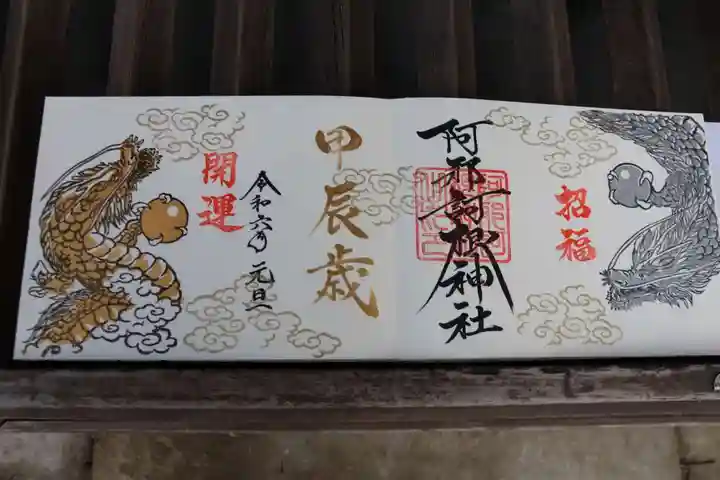 招福
阿邪訶根神社
甲辰歳
開運
令和六年 元旦